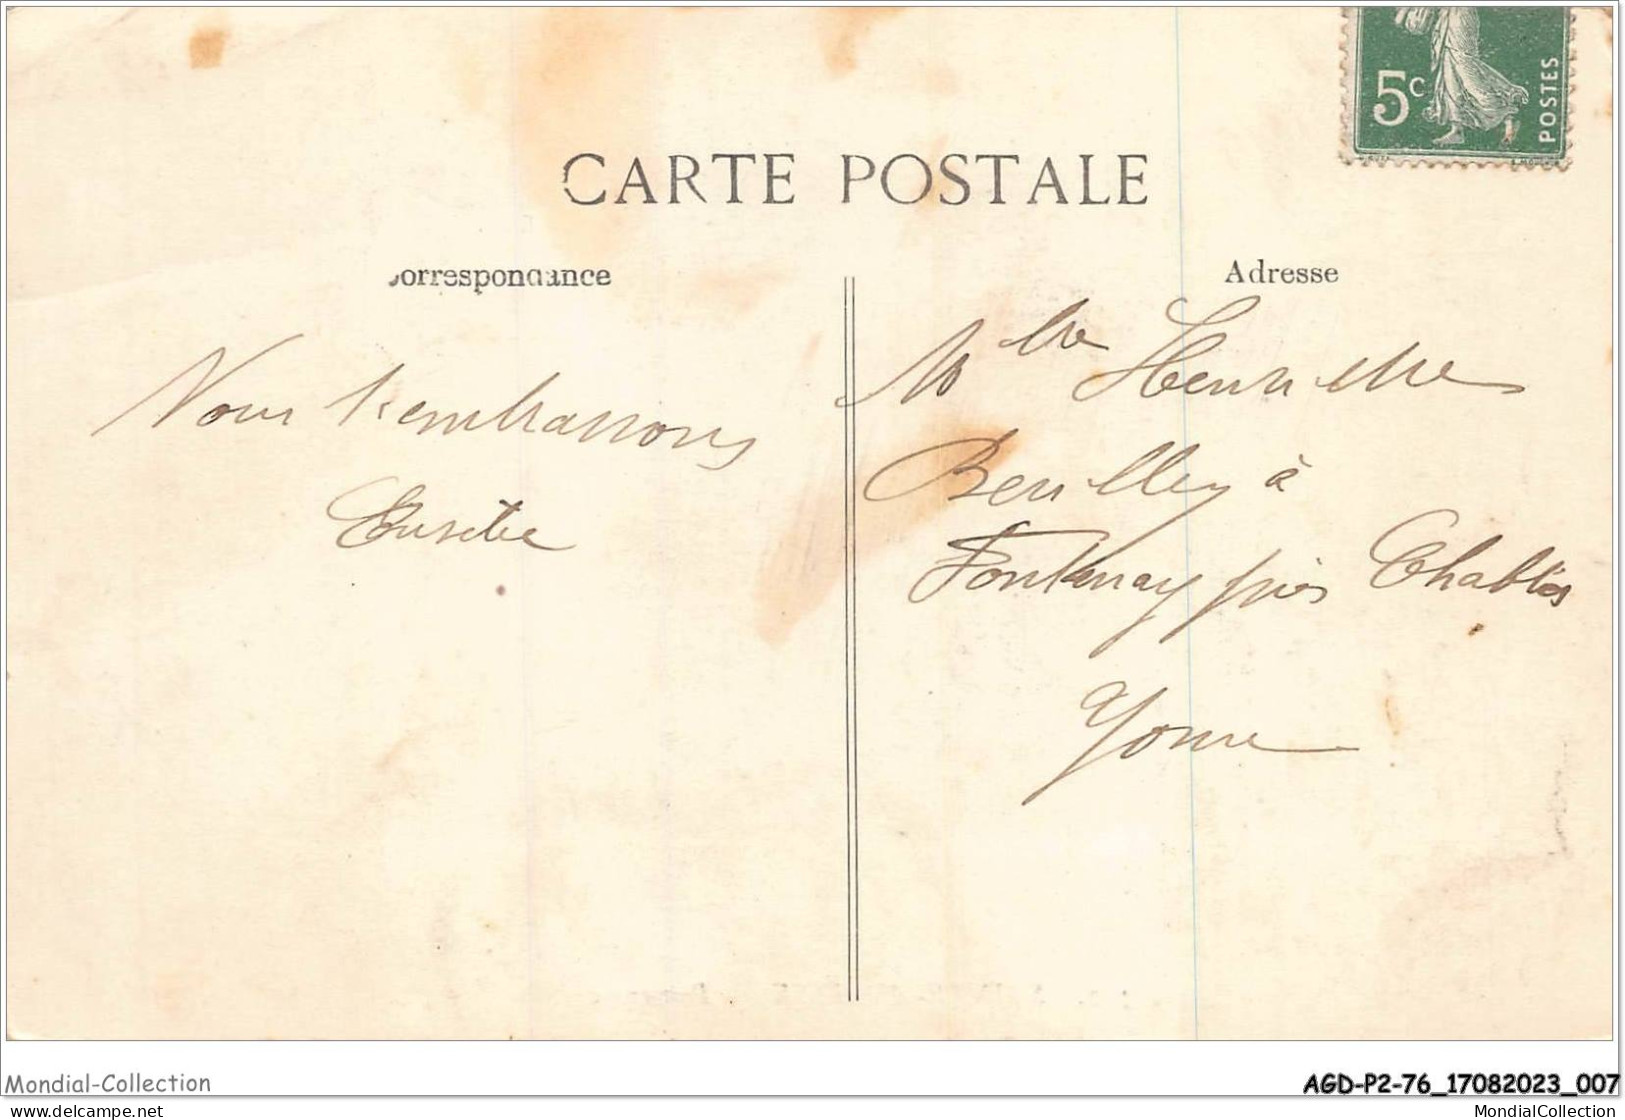 5c
POSTES
CARTE POSTALE
Correspondance
Adresse
Nous t'embrassons
Eusébe
Mlle Henriette
à
Fontenay près Chablis
Yonne
Mondial-Collection
AGD-P2-76_17082023_007
https://www.delcampe.net
MondialCollection